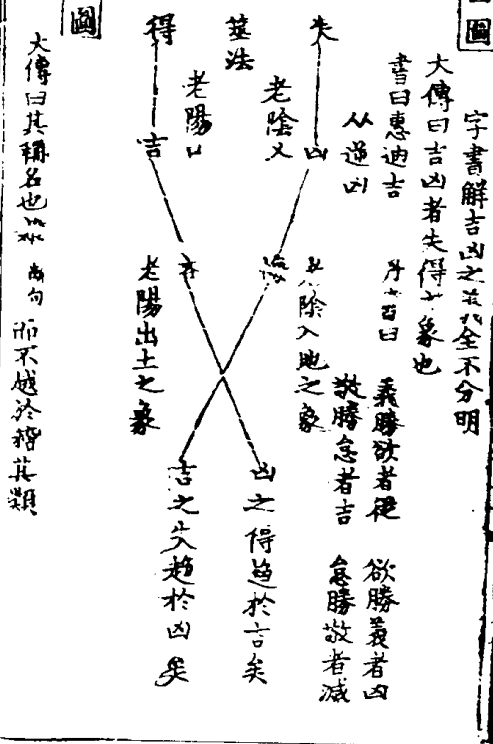 圖
字書解吉凶之義全不分明
大傳曰吉凶者失得之象也
書曰惠迪吉
从逆凶
丹書曰
義勝欲者從
敬勝怠者吉
欲勝義者凶
怠勝敬者滅
失
凶
老陰乂
悔
老陰入地之象
凶之得趋於吉矣
筮法
得
吉
老陽口
吝
老陽出土之象
吉之失趋於凶矣
圖
大傳曰其稱名也
而不越於稽其類